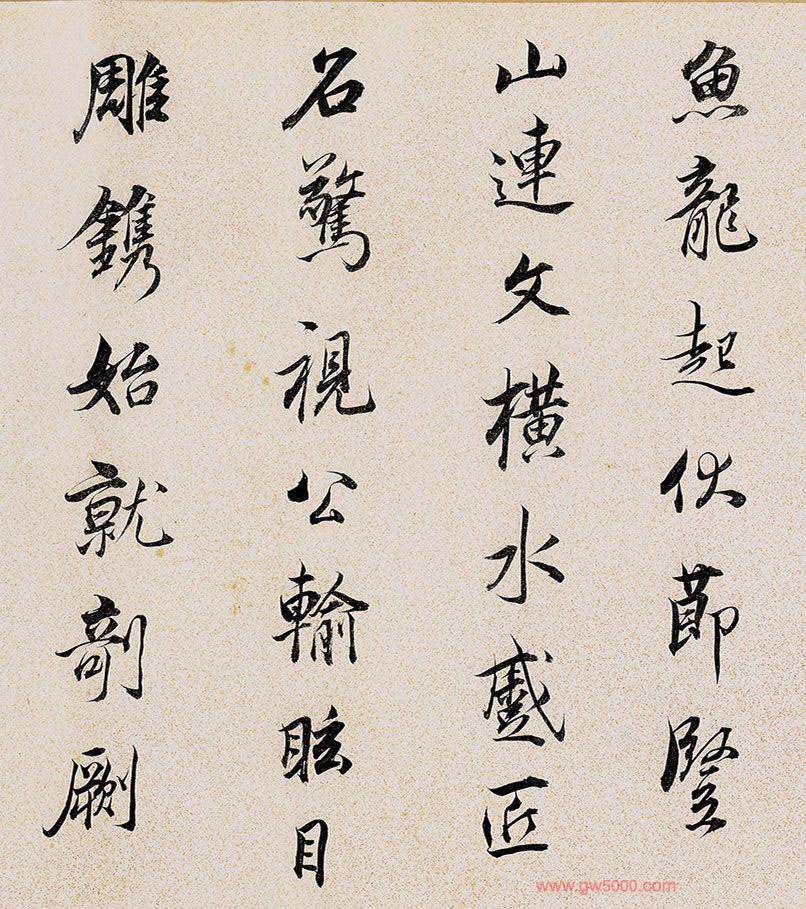 魚龍起伏節竪
山連文橫水蹙匠
石驚視公輸眩目
雕鐫始就剞劂
www.gw5000.com